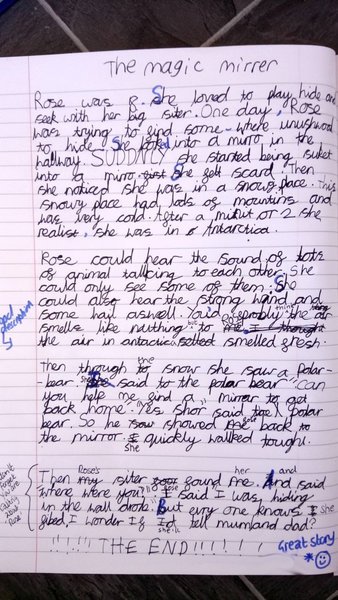 The magic mirrer
Rose was 8. She loved to play hide and
seek with her big siter. One day, Rose
was trying to find some-where unuswood
to hide. She looked into a mirro in the
hallway. SUDDNLY she started being suket
into a mirro. She felt scard. Then
she noticed she was in a snowy place. This
snowy place had lods of mountins and
was very cold. After a minut or 2 she
realist, she was in Antarctica.
Rose could hear the sound of lots
of animal talking to each other. She
could only see some of them. She
could also hear the strong wind and
some hail aswell. the air
smells like nutthing to
the air in antacica smelled fresh.
good description
Then through the snow she saw a Polar-
bear. She said to the polar bear "can
you help me find a mirror to get
back home". Yes shor said the polar
bear. So he showed back to
the mirror. She quickly walked
Then Rose's siter found her and said
where were you? Rose said I was hiding
in the wall drode. But evry one knows she
fibed, I wonder if she'll tell mum and dad?
!!!!! THE END!!!!!!
Great story